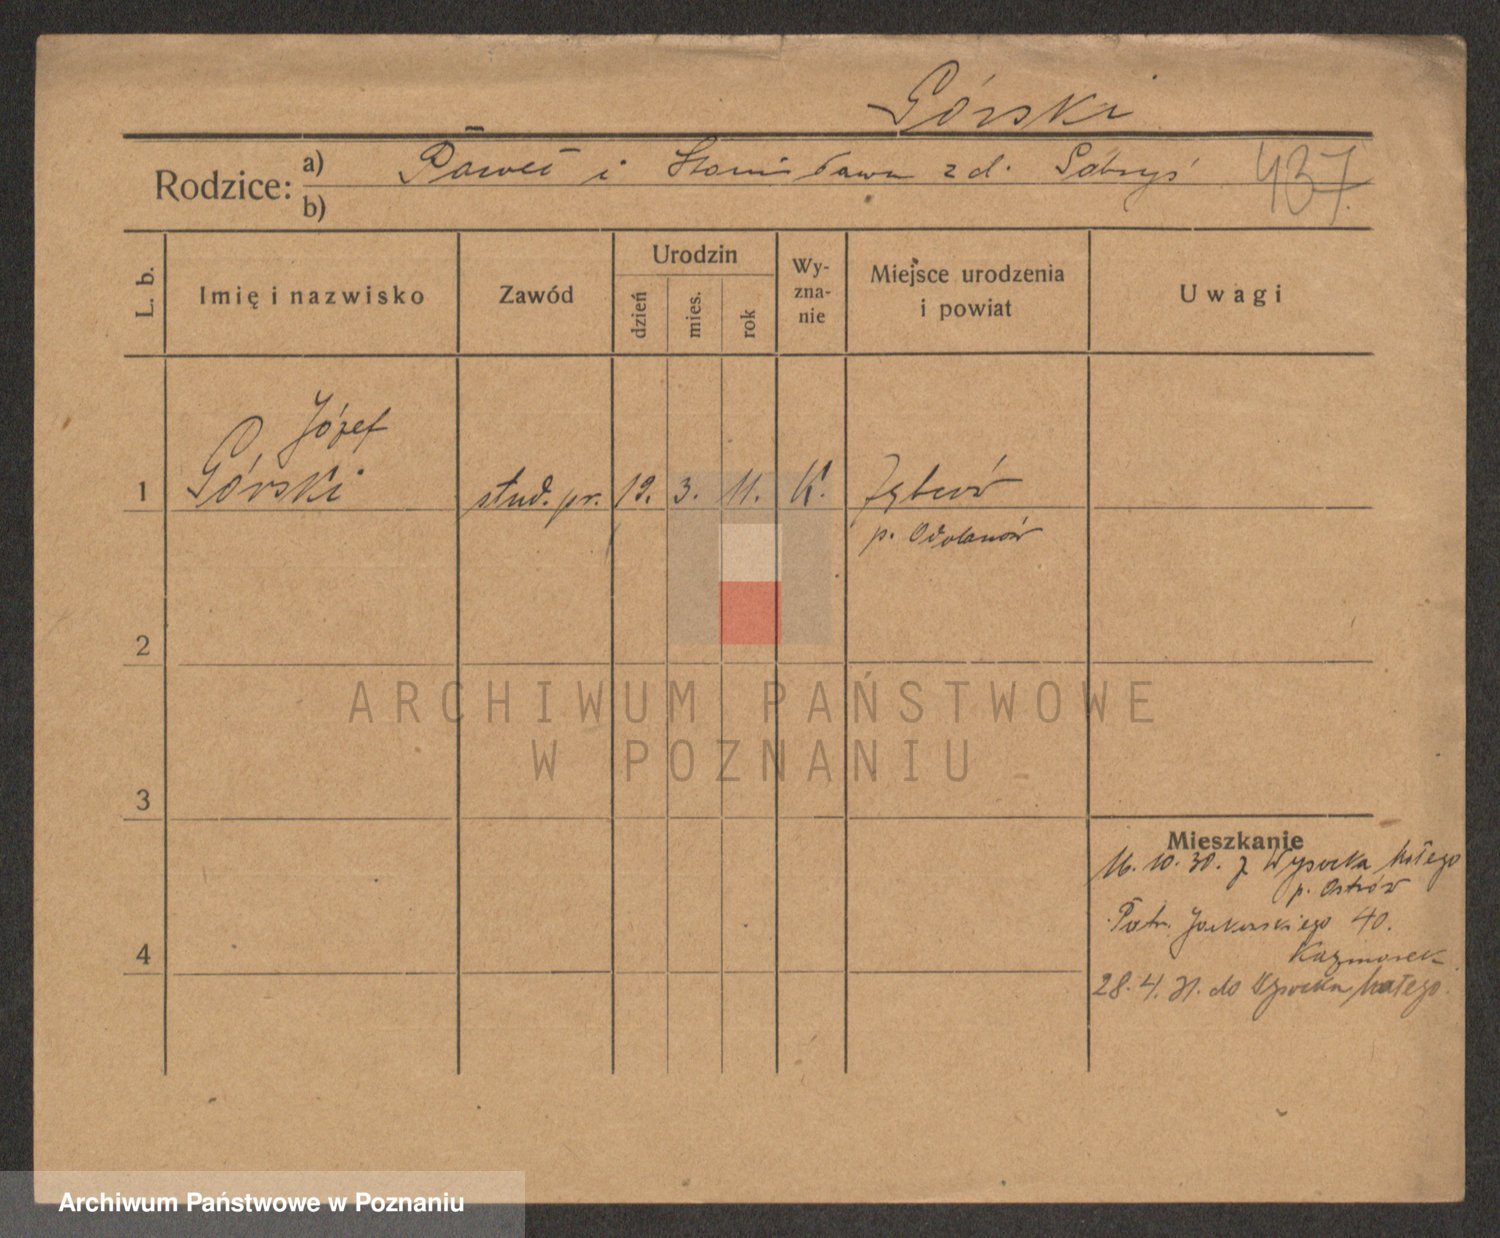 Górski
Rodzice: a) Paweł i Stanisława z d. Gabryś 437.
b)
L. b.
Imię i nazwisko
Zawód
Urodzin
dzień
mies.
rok
Wy-
zna-
nie
Miejsce urodzenia
i powiat
Uwagi
Józef
1 Górski stud. pr. 12. 3. 11. K.
p. Odolanów
2
3
4
Mieszkanie
16. 10. 30. z Wysocka małego
p. Ostrów
Jackowskiego 40.
Kaczmarek
28. 4. 31. do Wysocka małego.
ARCHIWUM PAŃSTWOWE
W POZNANIU
Archiwum Państwowe w Poznaniu